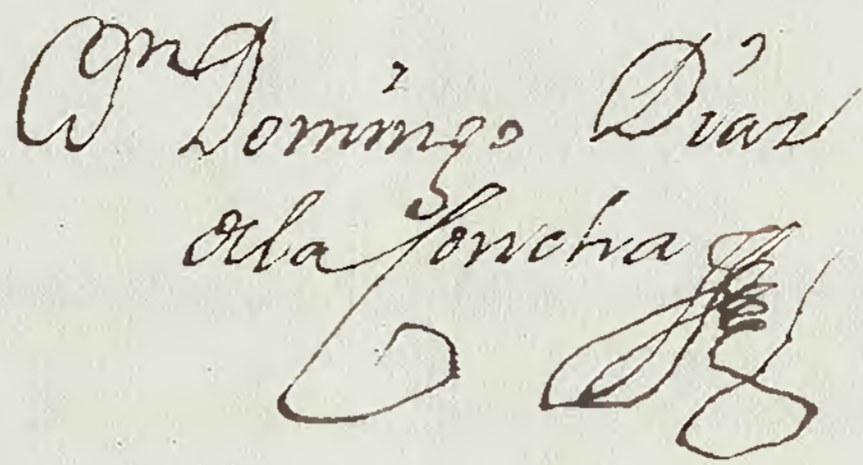 Dn Domingo Diaz
dela Concha